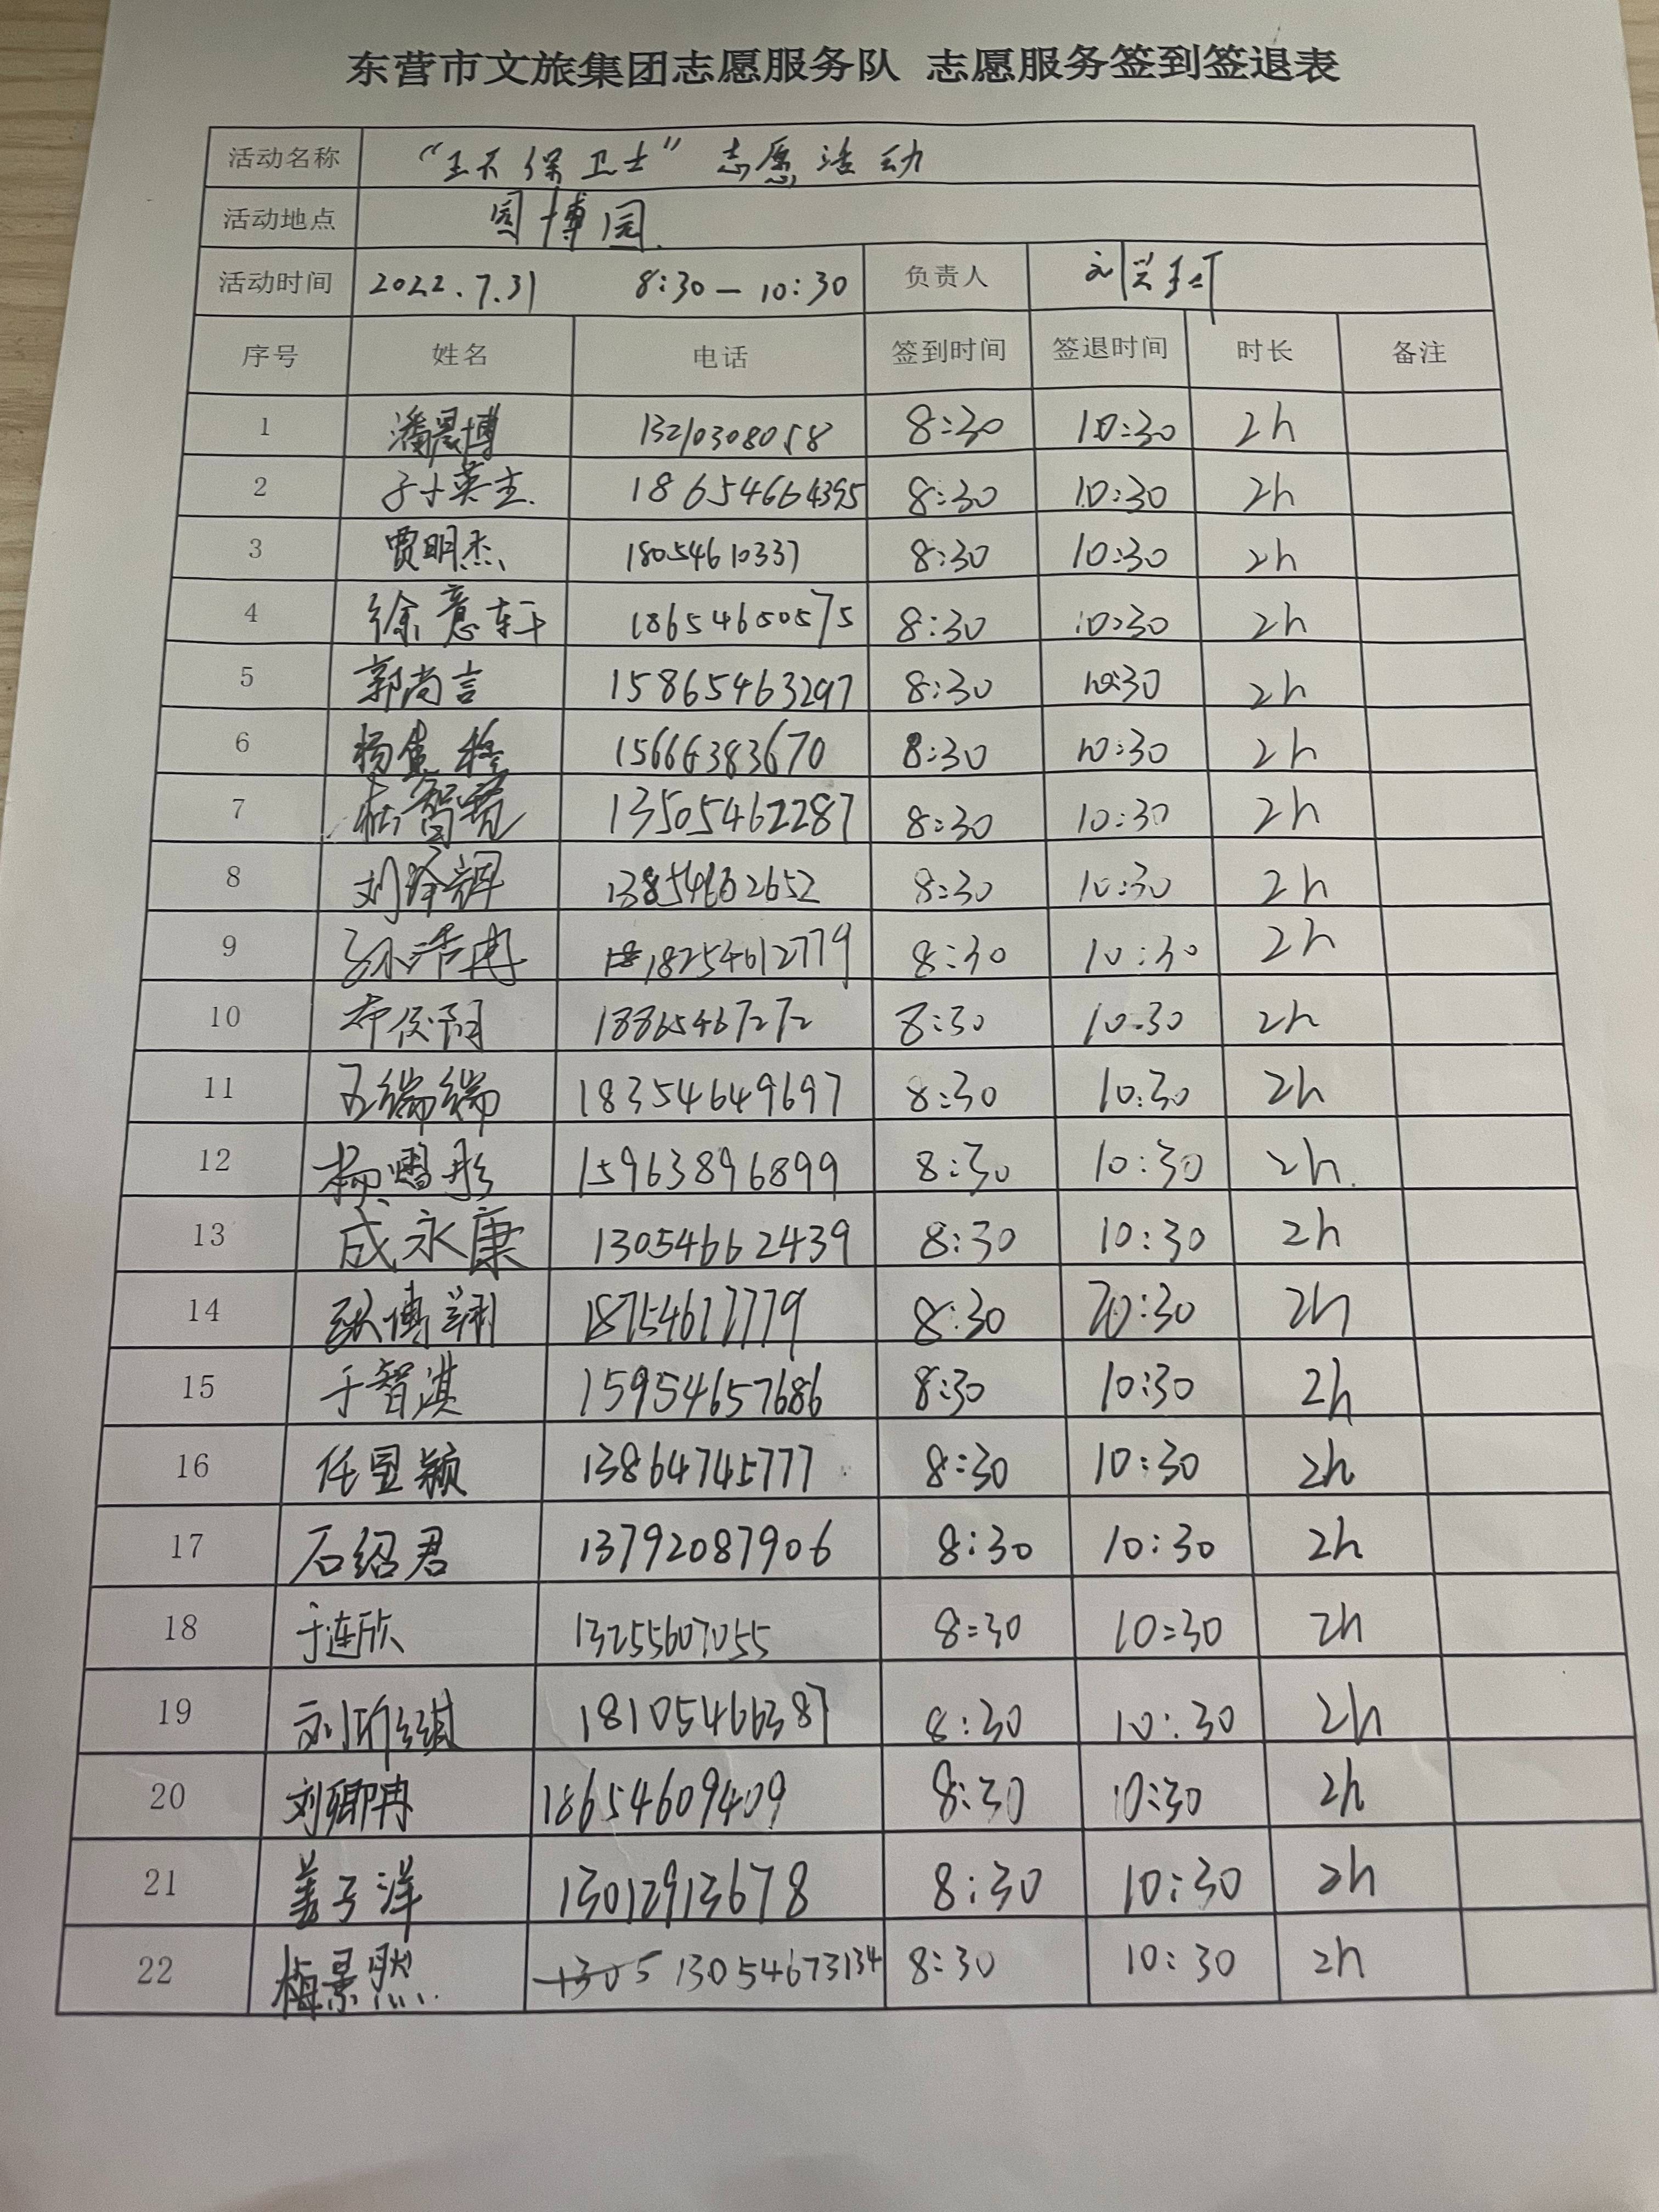 东营市文旅集团志愿服务队 志愿服务签到签退表
活动名称 “环保卫士”志愿活动
活动地点 园博园
活动时间 2022.7.31 8:30—10:30 负责人
序号 姓名 电话 签到时间 签退时间 时长 备注
1 潘晨博 13210308058 8:30 10:30 2h
2 18654664395 8:30 10:30 2h
3 贾明杰 18054610337 8:30 10:30 2h
4 徐意轩 18654650575 8:30 10:30 2h
5 郭尚言 15865463297 8:30 10:30 2h
6 15666383670 8:30 10:30 2h
7 13505462287 8:30 10:30 2h
8 13854662652 8:30 10:30 2h
9 孙浩冉 18254612779 8:30 10:30 2h
10 8:30 10:30 2h
11 王端端 18354649697 8:30 10:30 2h
12 15963896899 8:30 10:30 2h.
13 成永康 13054662439 8:30 10:30 2h
14 8:30 10:30 2h
15 于智淇 15954657686 8:30 10:30 2h
16 任昱颖 13864745777 8:30 10:30 2h
17 石绍君 13792087906 8:30 10:30 2h
18 于连欣 13255607055 8:30 10:30 2h
19 18105466387 8:30 10:30 2h
20 刘卿冉 18654609409 8:30 10:30 2h
21 姜子洋 13012913678 8:30 10:30 2h
22 梅景然. 1305 13054673134 8:30 10:30 2h